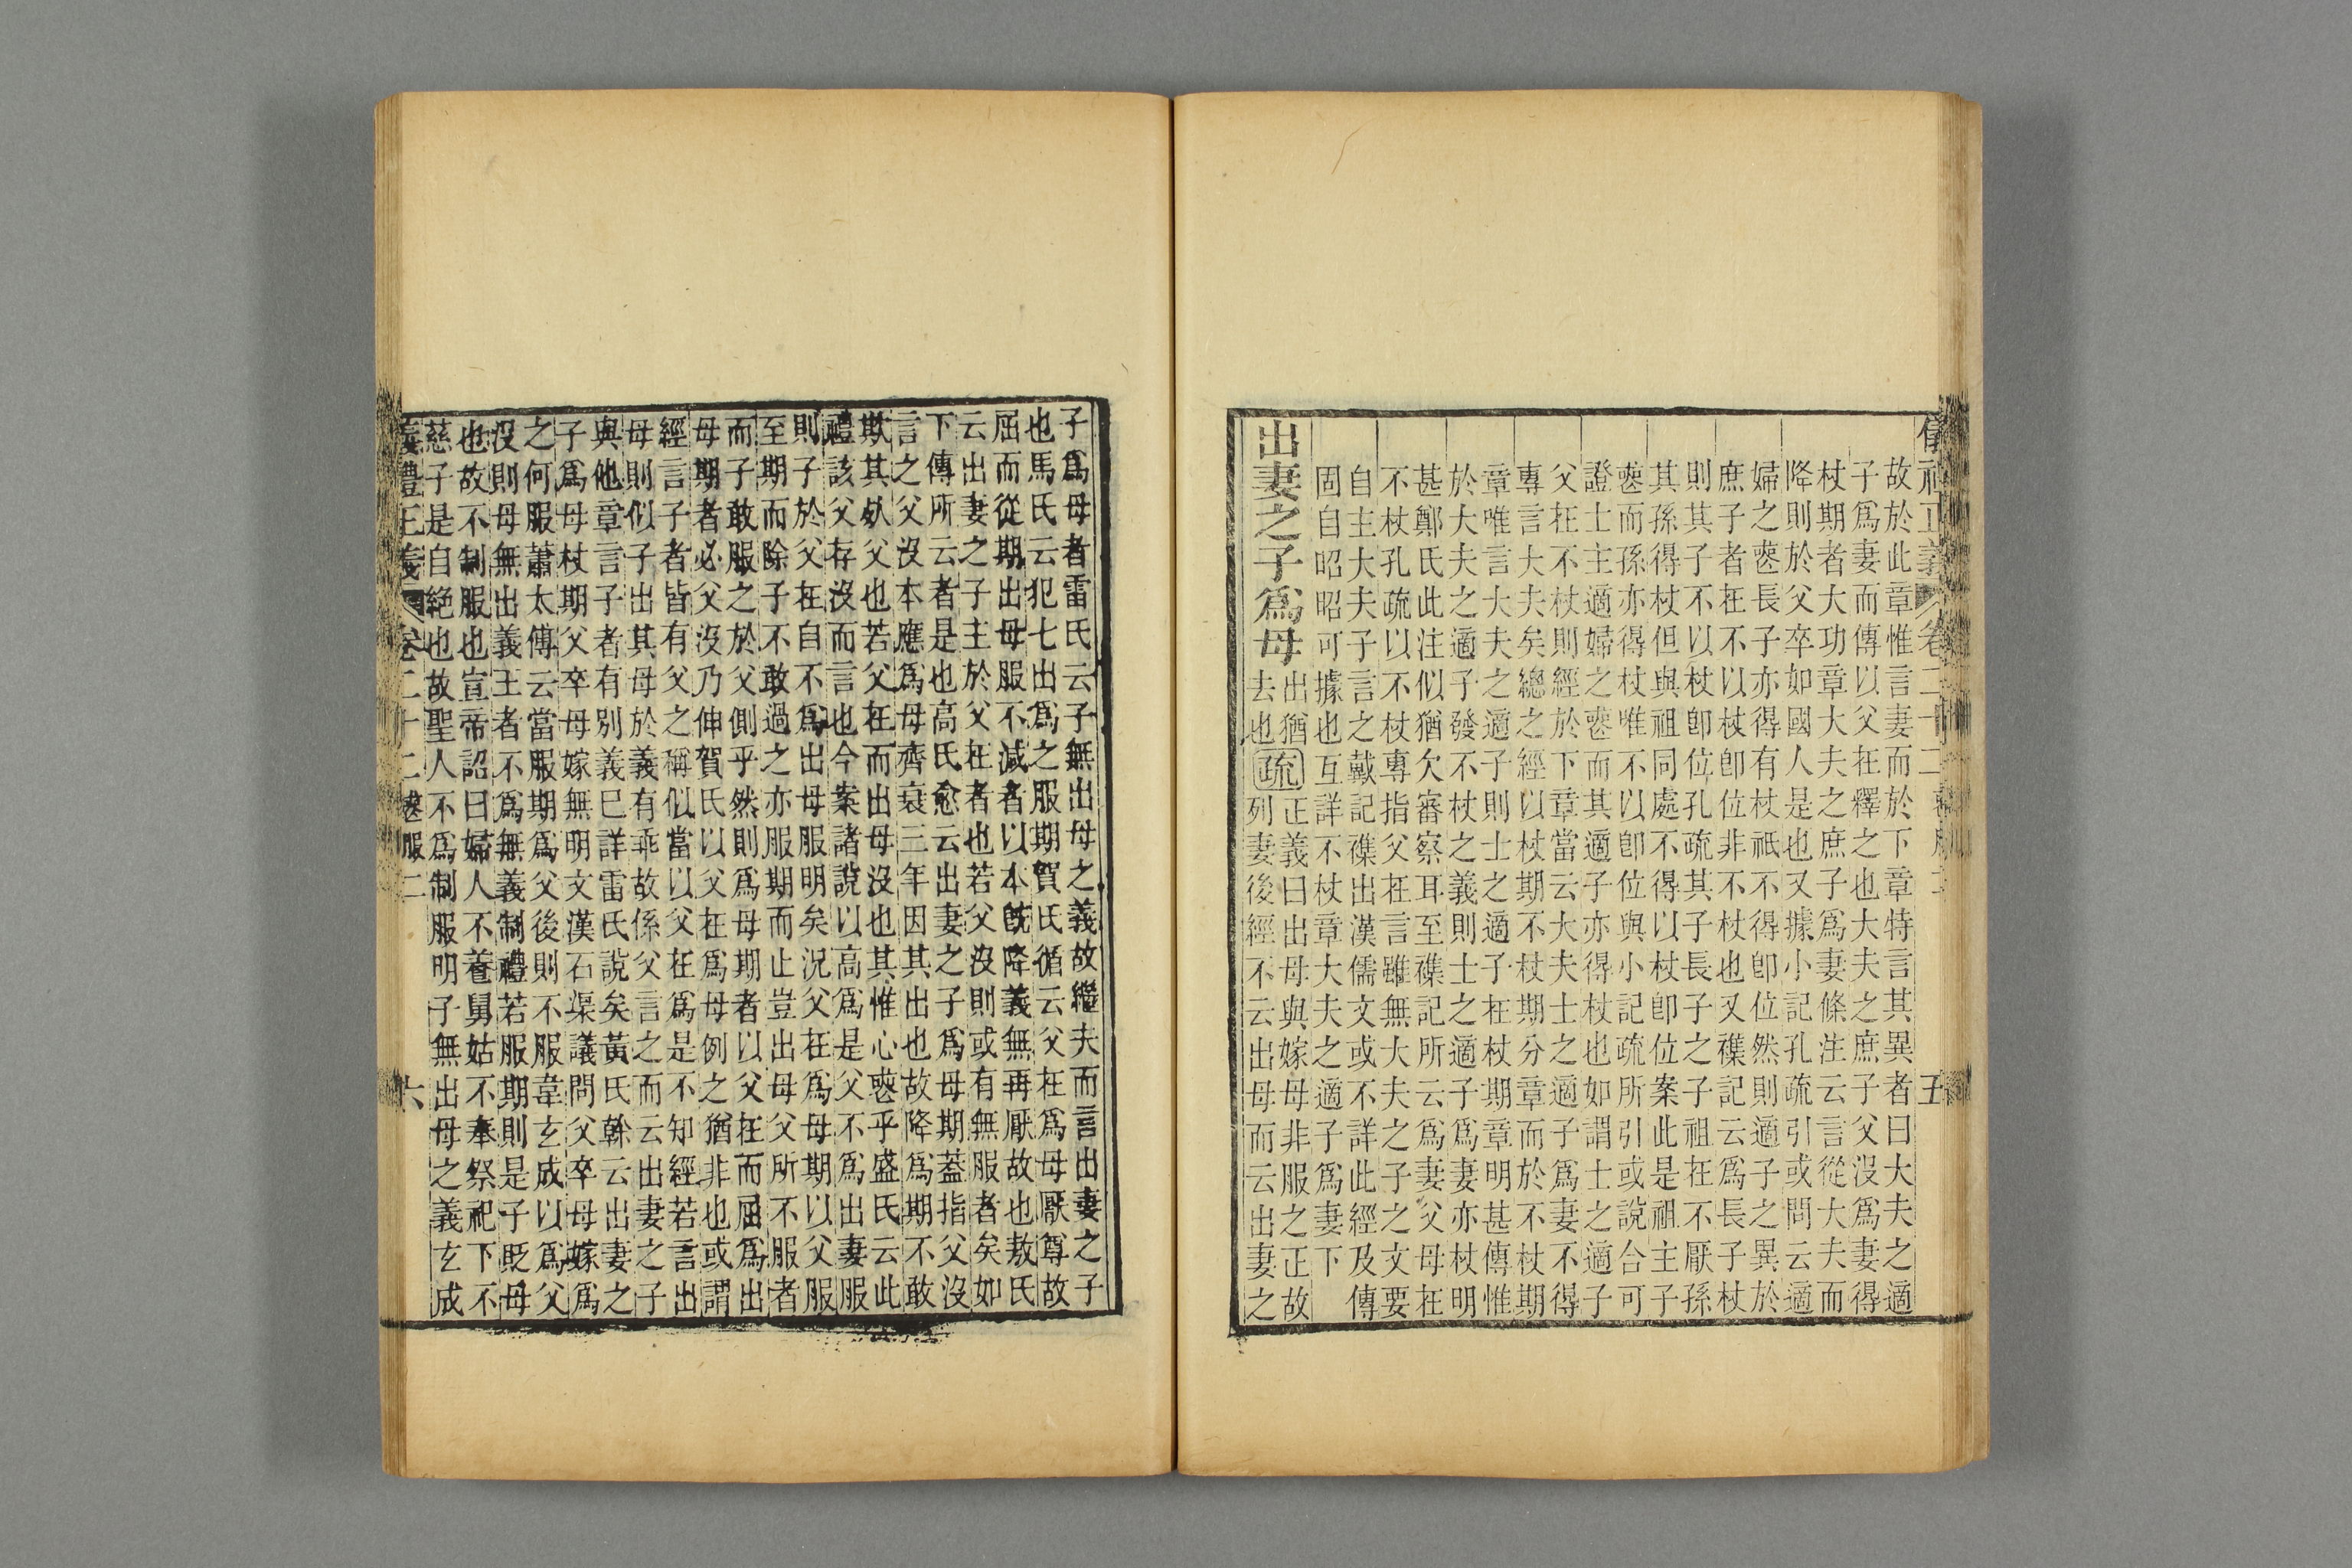 儀禮正義 卷二十二 喪服二 五
故於此章惟言妻而於下章特言其異者曰大夫之適
子爲妻而傳以父在釋之也大夫之庶子父沒爲妻得
杖期者大功章大夫之庶子爲妻條注云言從大夫而
降則於父卒如國人是也又據小記孔疏引或問云適
婦之喪長子亦得有杖祗不得卽位然則適子之異於
庶子者在不以杖卽位非不杖也又襍記云爲長子杖
則其子不以杖卽位孔疏其子長子之子祖在不厭孫
其孫得杖但與祖同處不得以杖卽位案此是祖主子
喪而孫亦得杖唯不以卽位與小記疏所引或說合可
證士主適婦之喪而其適子亦得杖也如謂士之適子
父在不杖則經於下章當云大夫士之適子爲妻不得
專言大夫矣總之經以杖期不杖期分章而於不杖期
章唯言大夫之適子則士之適子在杖期章明甚傳惟
於大夫之適子發不杖之義則士之適子爲妻亦杖明
甚鄭氏此注似猶欠審察耳至襍記所云爲妻父母在
不杖孔疏以不杖專指父在言雖無大夫之子之文要
自主大夫子言之戴記襍出漢儒文或不詳此經及傳
固自昭昭可據也互詳不杖章大夫之適子爲妻下
出妻之子爲母 出猶去也 疏 正義曰出母與嫁母非服之正故列妻後經不云出母而云出妻之
子爲母者雷氏云子無出母之義故繼夫而言出妻之子
也馬氏云犯七出爲之服期賀氏循云父在爲母厭尊故
屈而從期出母服不減者以本旣降義無再厭故也敖氏
云出妻之子主於父在者也若父沒則或有無服者矣如
下傳所云者是也高氏愈云出妻之子爲母期蓋指父沒
言之父沒本應爲母齊衰三年因其出也故降爲期不敢
欺其死父也若父在而出母沒也其惟心喪乎盛氏云此
禮該父存沒而言也今案諸說以高爲是父不爲出妻服
則子於父在自不爲出母服明矣況父在爲母期以父服
至期而除子不敢過之亦服期而止豈出母父所不服者
而子敢服之於父側乎然則爲母期者以父在而屈爲出
母期者必父沒乃伸賀氏以父在爲母例之猶非也或謂
經言子者皆有父之稱似當以父在爲是不知經若言出
母則似子出其母於義有乖故係父言之而云出妻之子
與他章言子者有別義巳詳雷氏說矣黃氏榦云出妻之
子爲母杖期父卒母嫁無明文漢石渠議問父卒母嫁爲
之何服蕭太傅云當服期爲父後則不服韋玄成以爲父
沒則母無出義王者不爲無義制禮若服期則是子貶母
也故不制服也宣帝詔曰婦人不養舅姑不奉祭祀下不
慈子是自絕也故聖人不爲制服明子無出母之義玄成
儀禮正義 卷二十二 喪服二 六